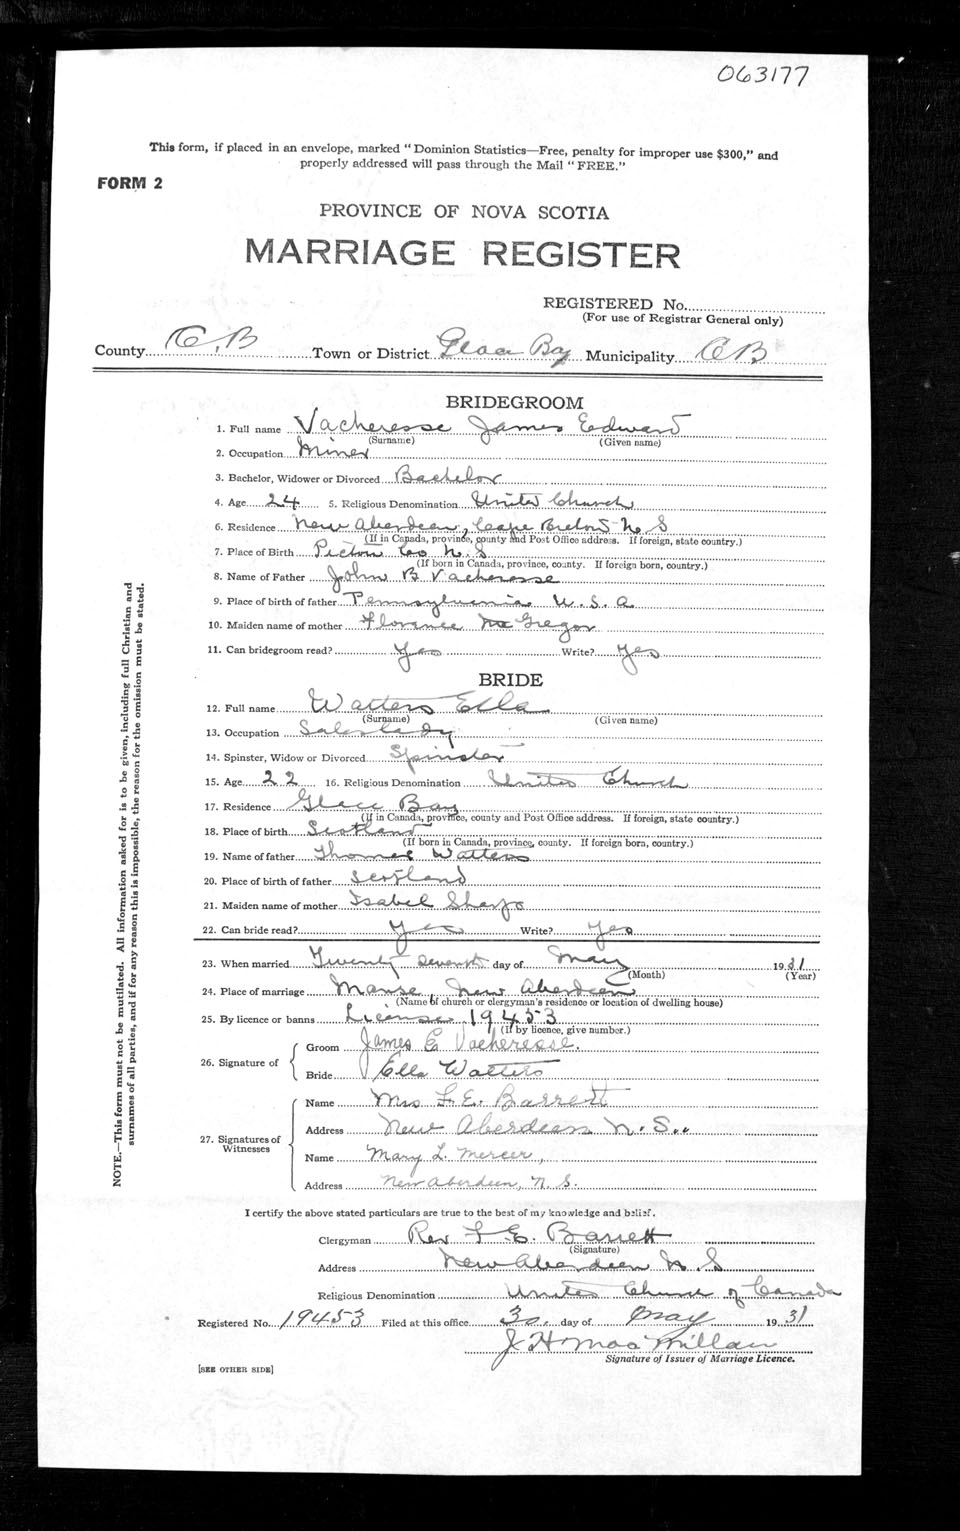 063177
This form, if placed in an envelope, marked "Dominion Statistics—Free, penalty for improper use $300," and
properly addressed will pass through the Mail "FREE."
FORM 2
PROVINCE OF NOVA SCOTIA
MARRIAGE REGISTER
REGISTERED No.
(For use of Registrar General only)
County C.B Town or District Glace Bay Municipality CB
BRIDEGROOM
1. Full name Vacheresse James Edward
(Surname) (Given name)
2. Occupation Miner
3. Bachelor, Widower or Divorced Bachelor
4. Age 24 5. Religious Denomination United Church
6. Residence New Aberdeen, Cape Breton N. S
(If in Canada, province, county and Post Office address. If foreign, state country.)
7. Place of Birth Pictou Co N. S
(If born in Canada, province, county. If foreign born, country.)
8. Name of Father John B Vacheresse
9. Place of birth of father Pennsylvania U. S. A
10. Maiden name of mother Florance McGregor
11. Can bridegroom read? Yes Write? Yes
BRIDE
12. Full name Watters Ella
(Surname) (Given name)
13. Occupation Saleslady
14. Spinster, Widow or Divorced Spinster
15. Age 22 16. Religious Denomination United Church
17. Residence Glace Bay
(If in Canada, province, county and Post Office address. If foreign, state country.)
18. Place of birth Scotland
(If born in Canada, province, county. If foreign born, country.)
19. Name of father Thomas Watters
20. Place of birth of father Scotland
21. Maiden name of mother Isabel Sharp
22. Can bride read? Yes Write? Yes
23. When married Twenty seventh day of May 1931
(Month) (Year)
24. Place of marriage Manse, New Aberdeen
(Name of church or clergyman's residence or location of dwelling house)
25. By licence or banns License 19453
(If by licence, give number.)
26. Signature of
Groom James E Vacheresse.
Bride Ella Watters
27. Signatures of Witnesses
Name Mrs F. E. Barrett
Address New Aberdeen N. S..
Name Mary L. Mercer,
Address New Aberdeen, N. S.
I certify the above stated particulars are true to the best of my knowledge and belief.
Clergyman Rev F E. Barrett
(Signature)
Address New Aberdeen N S
Religious Denomination United Church of Canada
Registered No. 19453 Filed at this office 30. day of May 1931
J H MacMillan
Signature of Issuer of Marriage Licence.
[SEE OTHER SIDE]
NOTE.—This form must not be mutilated. All information asked for is to be given, including full Christian and
surnames of all parties, and if for any reason this is impossible, the reason for the omission must be stated.